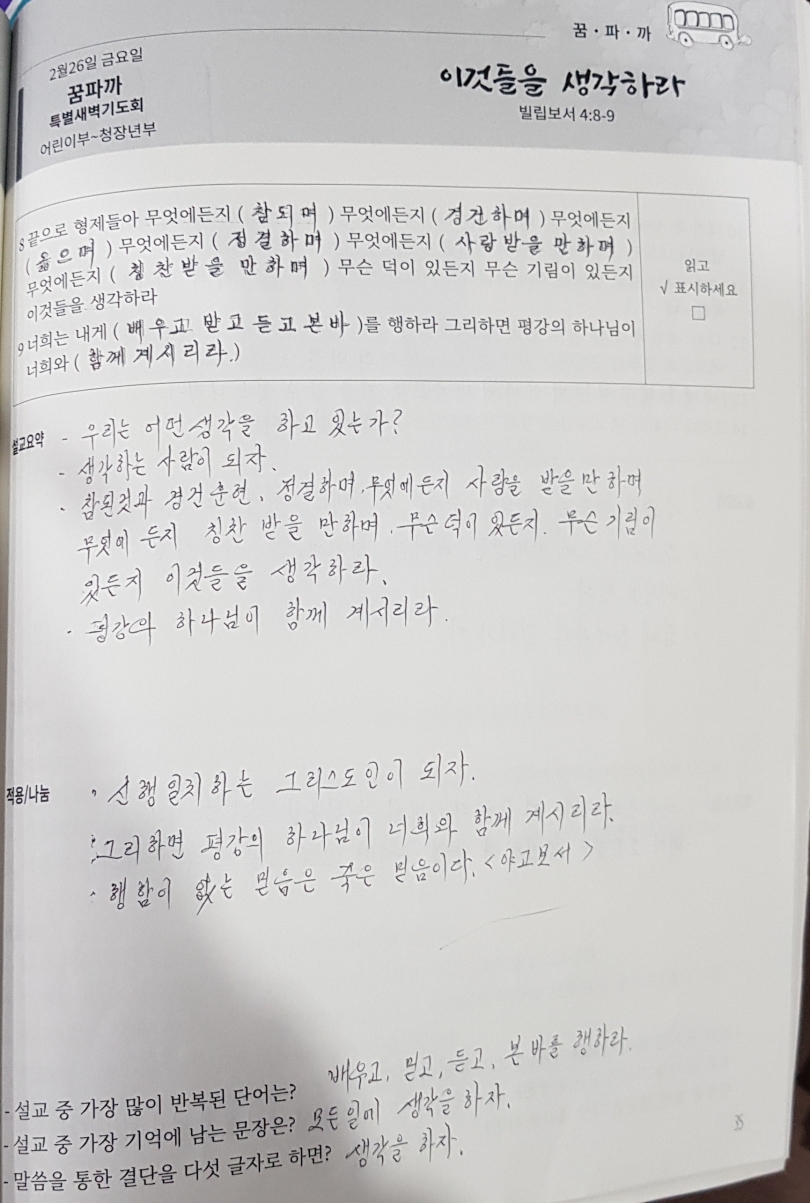 꿈·파·까
2월26일 금요일
꿈파까
특별새벽기도회
어린이부~청장년부
이것들을 생각하라
빌립보서 4:8-9
8 끝으로 형제들아 무엇에든지 ( 참되며 ) 무엇에든지 ( 경건하며 ) 무엇에든지
( 옳으며 ) 무엇에든지 ( 정결하며 ) 무엇에든지 ( 사랑받을 만하며 )
무엇에든지 ( 칭찬받을 만하며 ) 무슨 덕이 있든지 무슨 기림이 있든지
이것들을 생각하라
9 너희는 내게 ( 배우고 받고 듣고 본바 )를 행하라 그리하면 평강의 하나님이
너희와 ( 함께 계시리라.)
읽고
√ 표시하세요
□
설교요약
- 우리는 어떤생각을 하고 있는가?
- 생각하는 사람이 되자.
· 참된것과 경건훈련, 정결하며, 무엇에든지 사랑을 받을만하며
무엇에 든지 칭찬 받을 만하며, 무슨덕이 있든지. 무슨 기림이
있든지 이것들을 생각하라.
· 평강의 하나님이 함께 계시리라.
적용/나눔
· 신행일치하는 그리스도인이 되자.
· 그리하면 평강의 하나님이 너희와 함께 계시리라.
· 행함이 없는 믿음은 죽은 믿음이다. <야고보서>
배우고, 믿고, 듣고, 본바를 행하라.
- 설교 중 가장 많이 반복된 단어는?
- 설교 중 가장 기억에 남는 문장은? 모든일에 생각을하자.
- 말씀을 통한 결단을 다섯 글자로 하면? 생각을 하자.
35